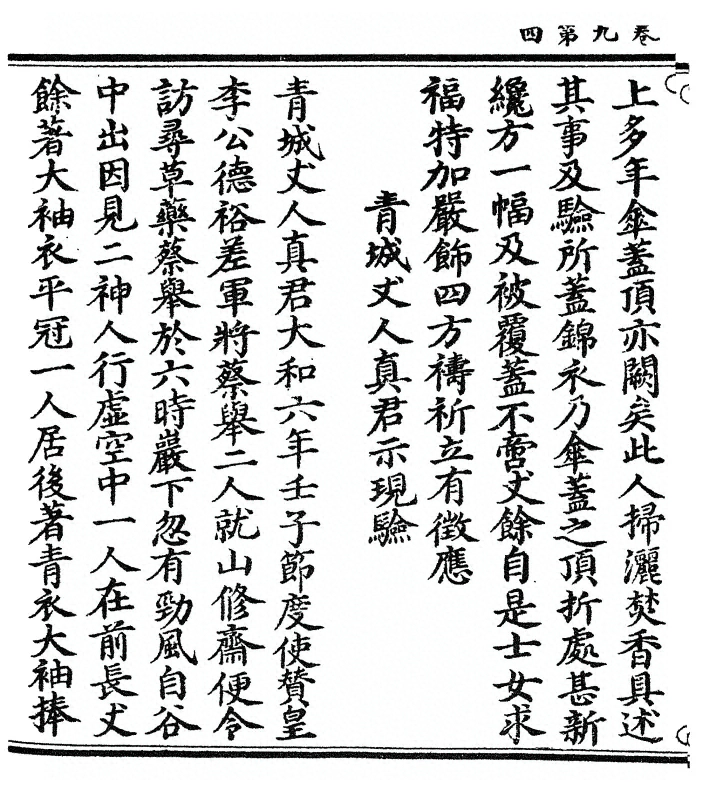 卷九第四
上多年傘蓋頂亦闕矣此人掃灑焚香具述
其事及驗所蓋錦衣乃傘蓋之頂折處甚新
纔方一幅及被覆蓋不啻丈餘自是士女求
福特加嚴飾四方禱祈立有徵應
青城丈人真君示現驗
青城丈人真君大和六年壬子節度使贊皇
李公德裕差軍將蔡舉二人就山修齋便令
訪尋草藥蔡舉於六時巖下忽有勁風自谷
中出因見二神人行虛空中一人在前長丈
餘著大袖衣平冠一人居後著青衣大袖捧